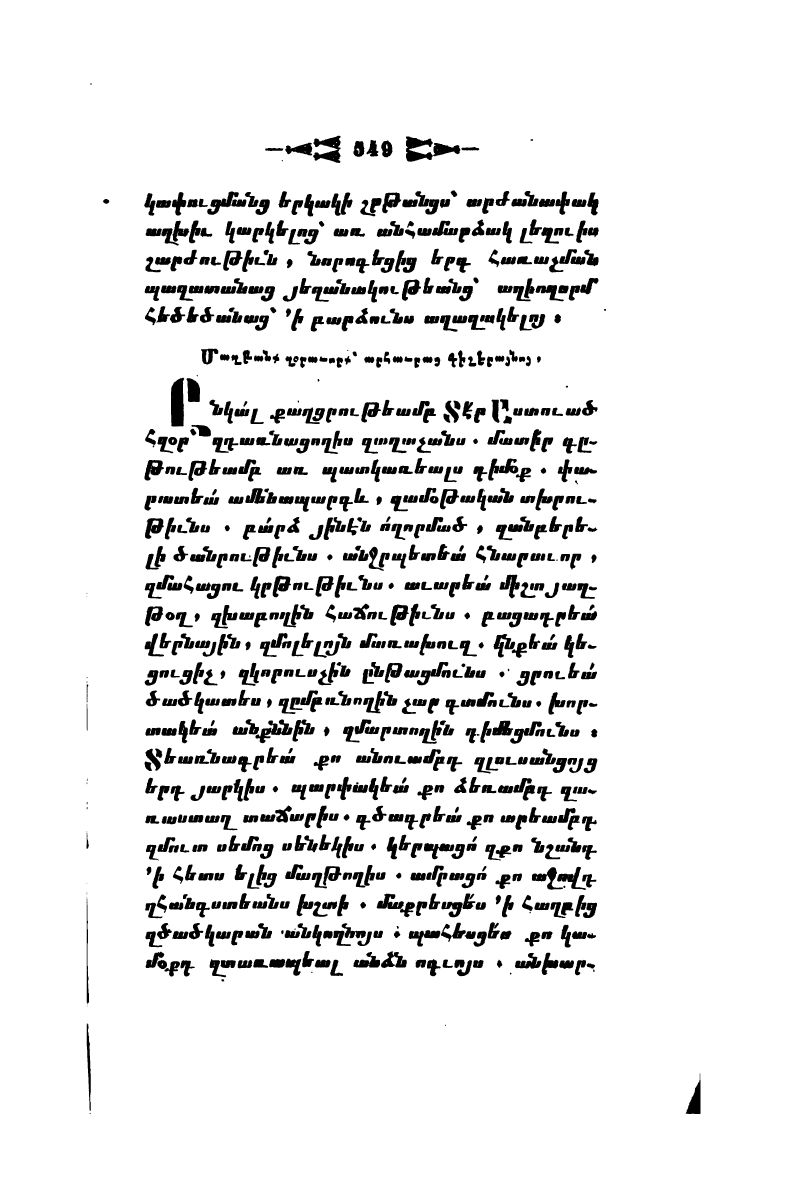 549
կափուցմանց երկակի շրթանցս՝ արժանափակ
աղխիւ կարկելոց՝ առ անհամարձակ լեզուիս
շարժութիւն, նորոգեցից երգ հառաչման
պաղատանաց յեղանակութեանց՝ աղիողորմ
հեծեծանաց՝ ՚ի բարձունս աղաղակելոյ ։
Ընկա՛լ քաղցրութեամբ Տէր Աստուած
հզօր՝ զդառնացողիս զաղաչանս. մատի՛ր գը-
թութեամբ առ պատկառեալս դիմօք. փա-
րատեա՛ ամենապարգև, զամօթական տխրու-
թիւնս. բա՛րձ յինէն ո՛ղորմած, զանբերե-
լի ծանրութիւնս. անջրպետեա՛ հնարաւոր,
զմահացու կրթութիւնս. աւարեա՛ միշտ յաղ-
թօղ, զխաբողին հաճութիւնս. բացադրեա՛
վերնային, զմոլելոյն մառախուղ. կնքեա՛ կե-
ցուցիչ, զկորուսչին ընթացմունս. ցրուեա՛
ծածկատես, զըմբռնողին չար գտմունս. խոր-
տակեա՛ անքննին, զմարտողին դիմեցմունս ։
Տեառնագրեա՛ քո անուամբդ զլուսանցոյց
երդ յարկիս. պարփակեա՛ քո ձեռամբդ զա-
ռաստաղ տաճարիս. գծագրեա՛ քո արեամբդ
զմուտ սեմոց սենեկիս. կերպացո՛ զքո նշանդ
՚ի հետս ելից մաղթողիս. ամրացո՛ քո աջովդ
զհանգստեանս խշտի. մաքրեսցես ՚ի հաղբից
զծածկարան անկողնոյս. պահեսցես քո կա-
մօքդ զտառապեալ անձն ոգւոյս. անխար-